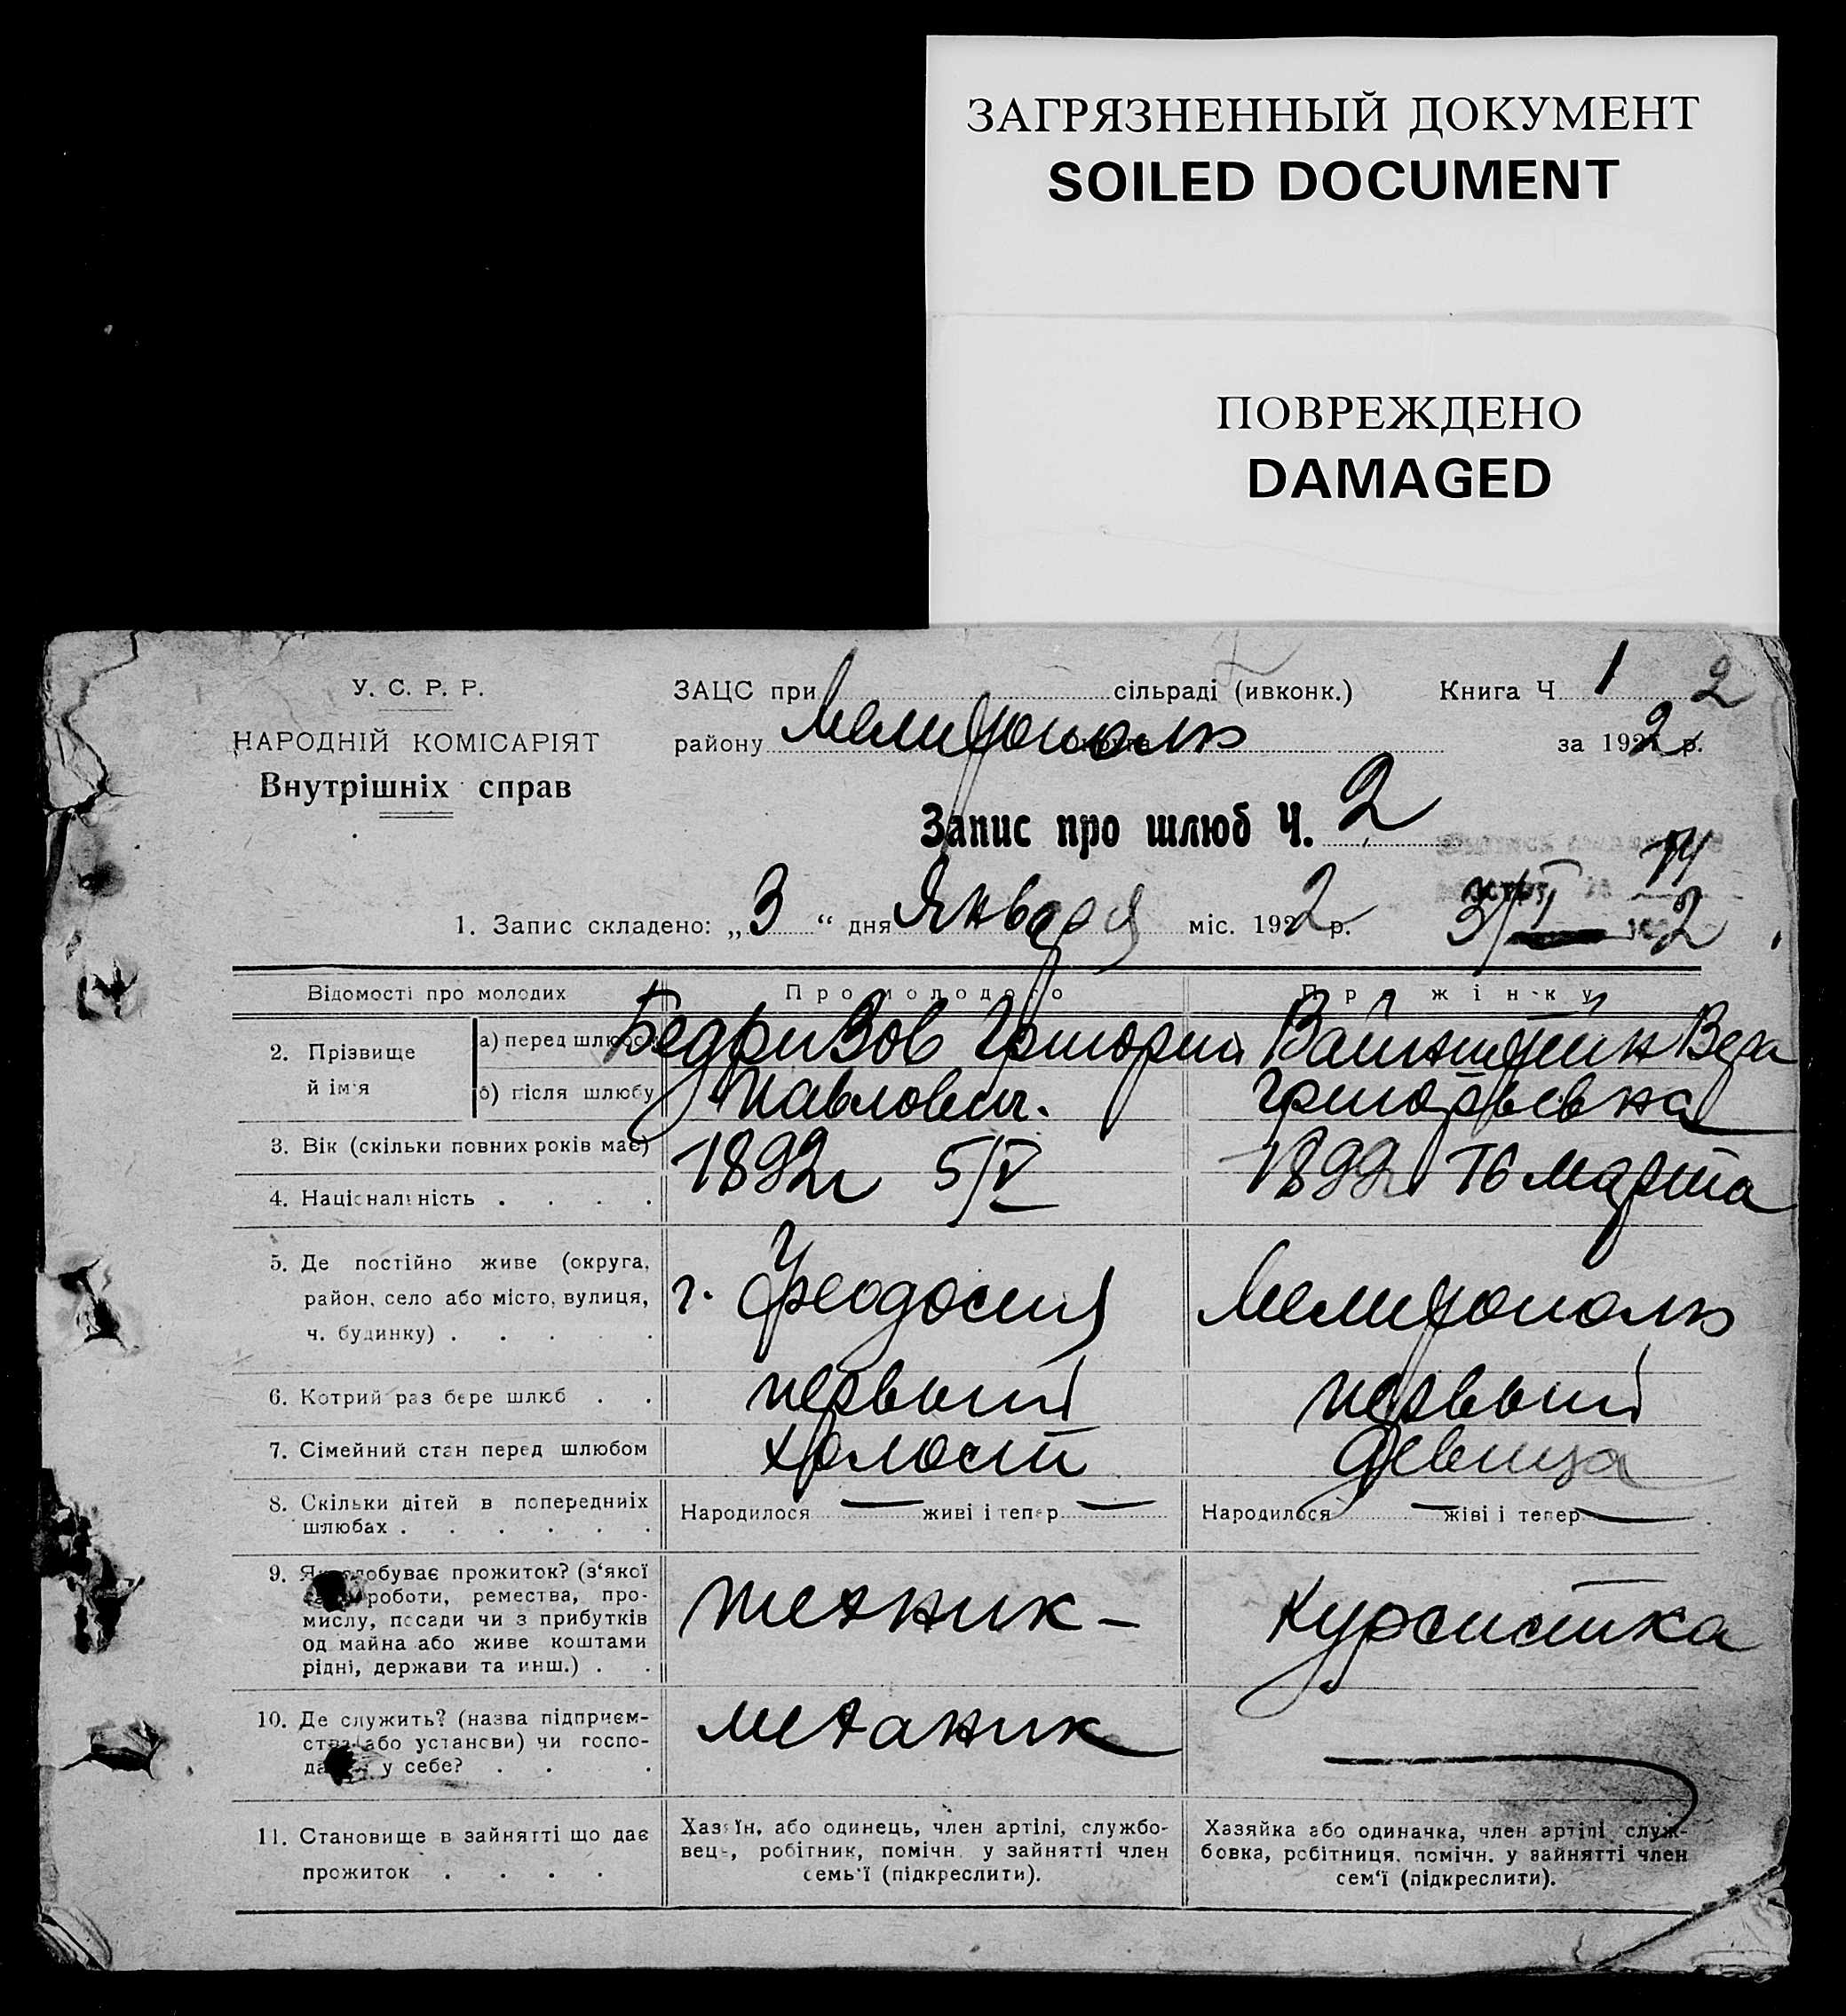 ЗАГРЯЗНЕННЫЙ ДОКУМЕНТ
SOILED DOCUMENT
ПОВРЕЖДЕНО
DAMAGED
У. С. Р. Р.
НАРОДНІЙ КОМІСАРІЯТ
Внутрішніх справ
ЗАЦС при сільраді (ивконк.) Книга Ч 1 2
району Мелитополь за 1922 р.
Запис про шлюб Ч. 2
1. Запис складено: „3“ дня Января міс. 1922 р.
Відомості про молодих Про молодого Про жінку
2. Прізвище й ім'я
а) перед шлюбом Бедризов Григорий Вайнштейн Вера
б) після шлюбу Павлович. Григорьевна
3. Вік (скільки повних років має) 1892 г 5/V 1899 16 марта
4. Національність . . . .
5. Де постійно живе (округа, район, село або місто, вулиця, ч. будинку) . . . . . г. Феодосия Мелитополь
6. Котрий раз бере шлюб . . первый первый
7. Сімейний стан перед шлюбом холост девица
8. Скільки дітей в попередниіх шлюбах . . . . . . Народилося — живі і тепер — Народилося — живі і тепер —
9. Як здобуває прожиток? (з‘якої роботи, ремества, промислу, посади чи з прибутків од майна або живе коштами рідні, держави та инш.) . . техник – курсистка
10. Де служить? (назва підприємства або установи) чи господарює у себе? . . . механик —
11. Становище в зайнятті що дає прожиток . . . .
Хазяїн, або одинець, член артілі, службовець, робітник, помічн. у зайнятті член семь'ї (підкреслити).
Хазяйка або одиначка, член артілі службовка, робітниця, помічн. у зайнятті член сем‘ї (підкреслити).